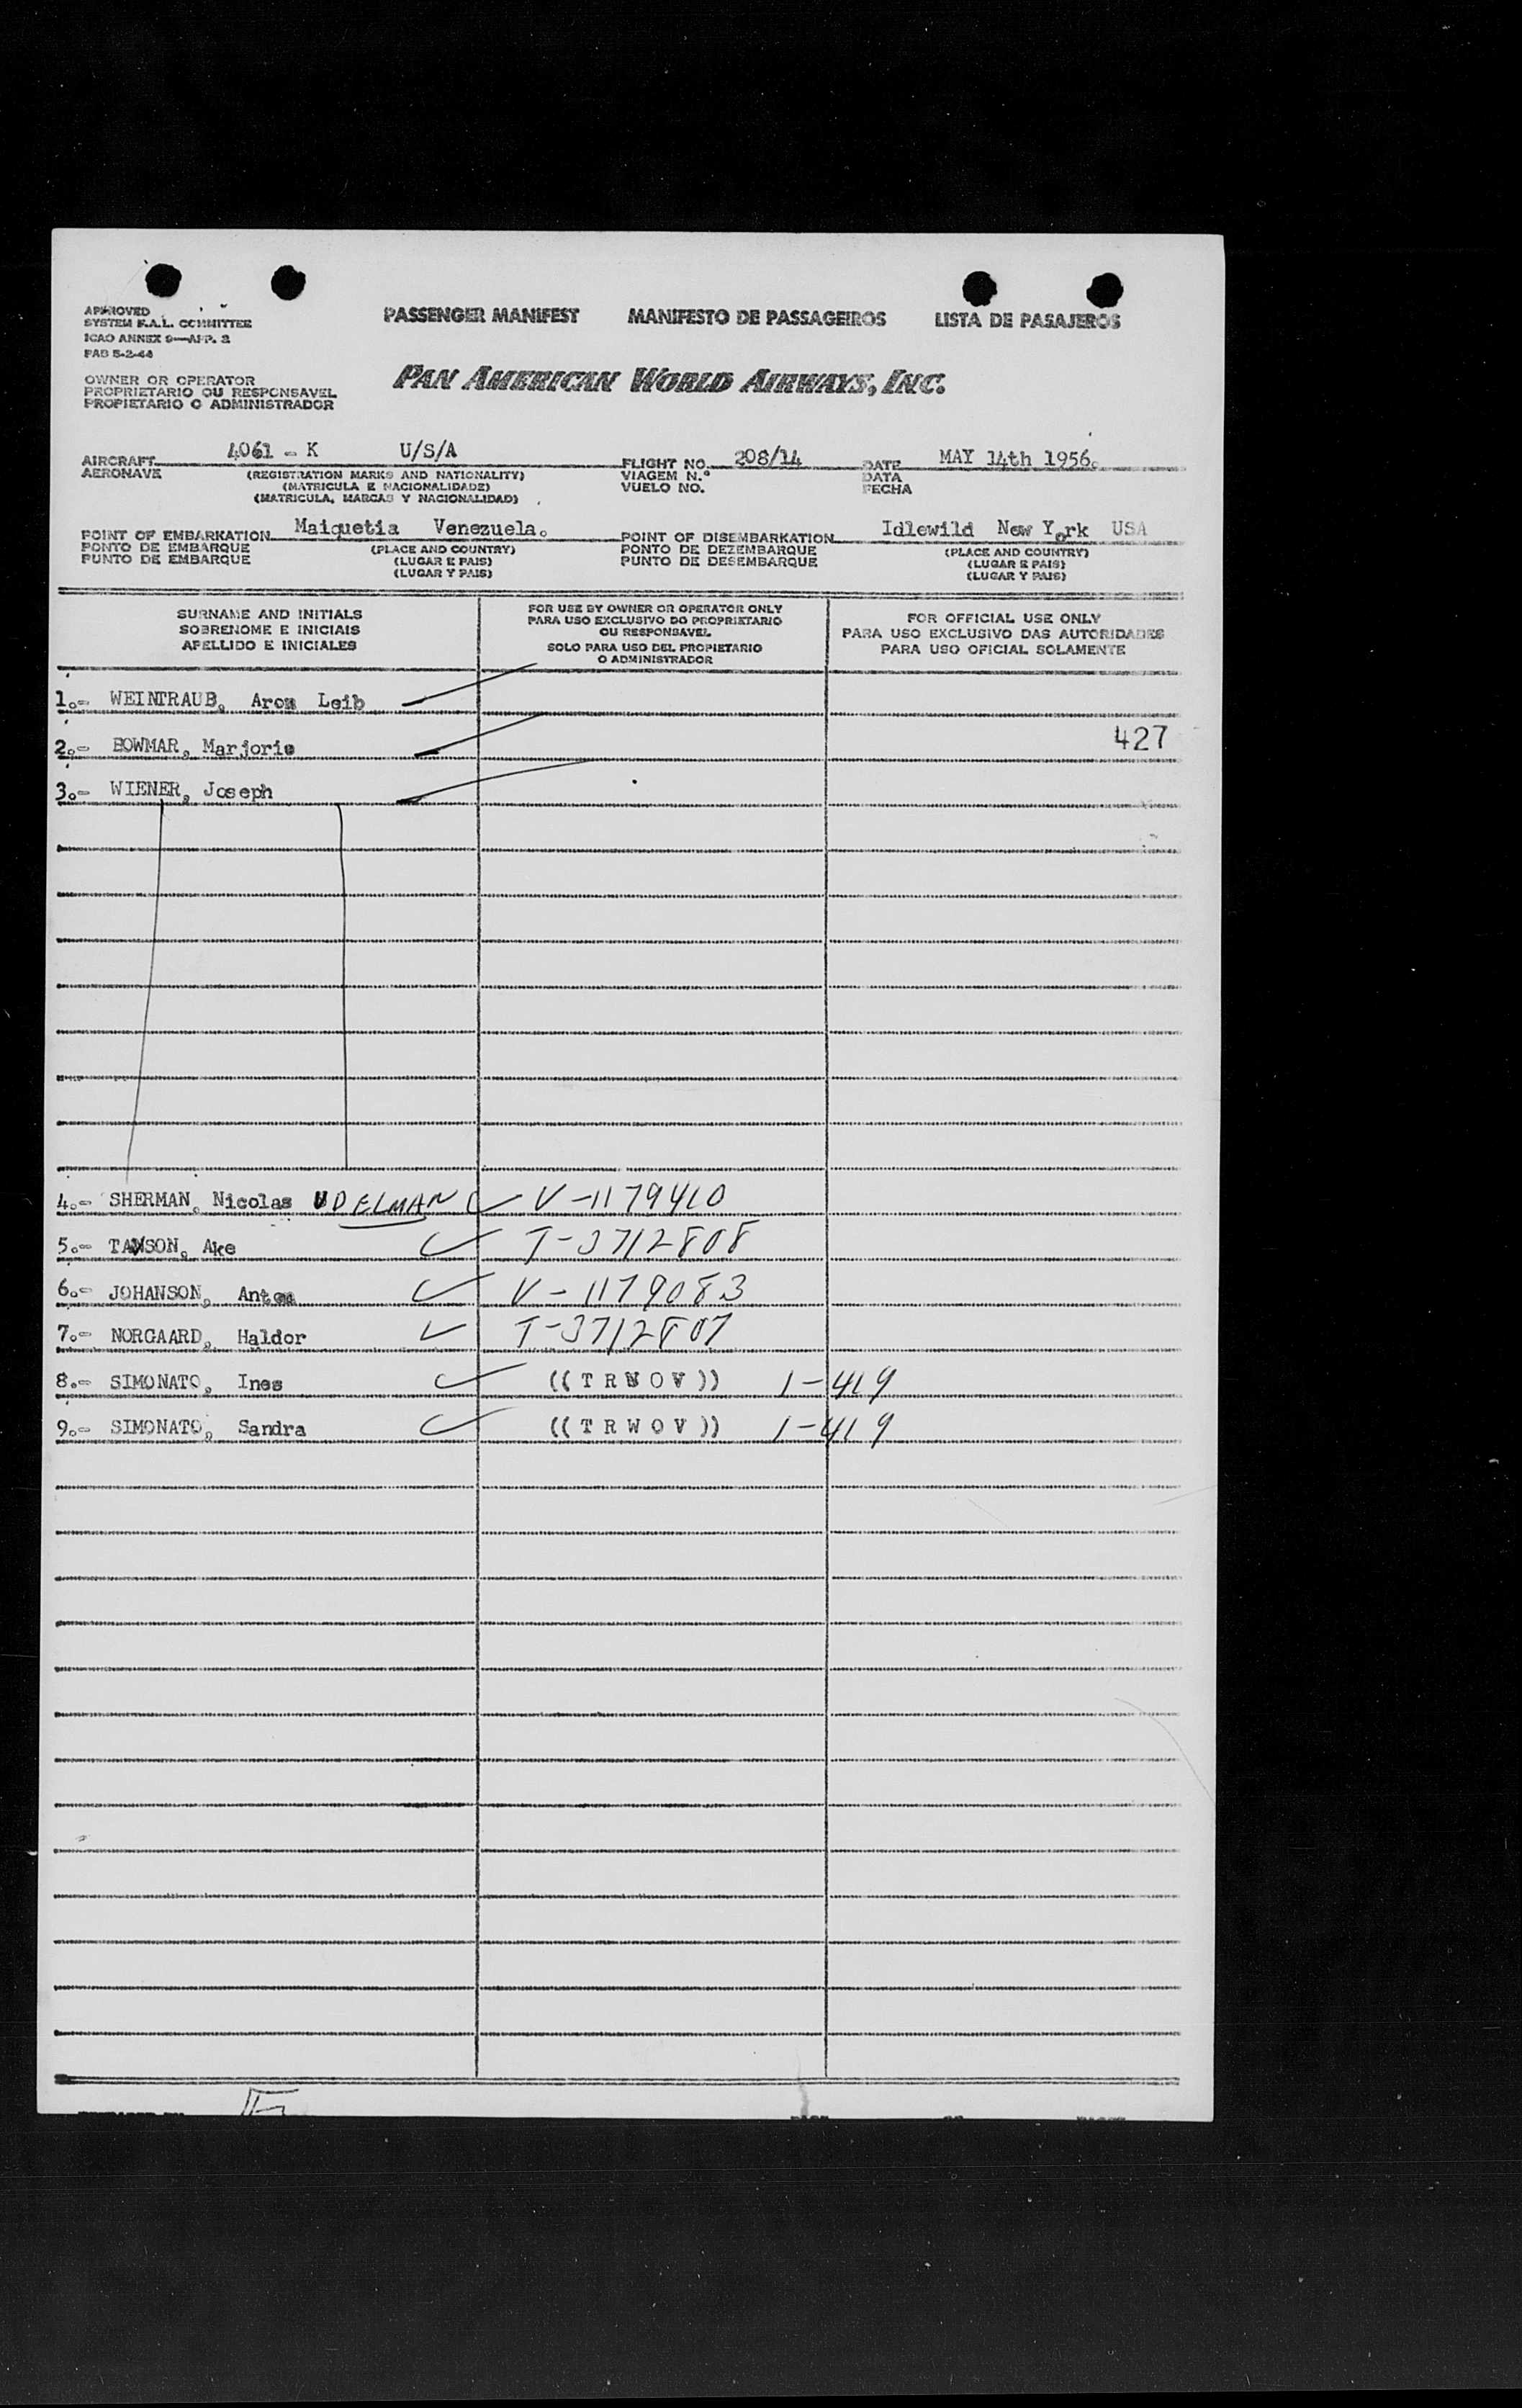 APPROVED
SYSTEM F.A.L. COMMITTEE
ICAO ANNEX 9—APP. 3
PAB 5-2-44
PASSENGER MANIFEST MANIFESTO DE PASSAGEIROS LISTA DE PASAJEROS
OWNER OR OPERATOR
PROPRIETARIO OU RESPONSAVEL
PROPIETARIO O ADMINISTRADOR
PAN AMERICAN WORLD AIRWAYS, INC.
AIRCRAFT 4061 - K U/S/A FLIGHT NO. 208/14 DATE MAY 14th 1956.
AERONAVE (REGISTRATION MARKS AND NATIONALITY) VIAGEM N.° DATA
(MATRICULA E NACIONALIDADE) VUELO NO. FECHA
(MATRICULA, MARCAS Y NACIONALIDAD)
POINT OF EMBARKATION Maiquetia Venezuela. POINT OF DISEMBARKATION Idlewild New York USA
PONTO DE EMBARQUE (PLACE AND COUNTRY) PONTO DE DEZEMBARQUE (PLACE AND COUNTRY)
PUNTO DE EMBARQUE (LUGAR E PAIS) PUNTO DE DESEMBARQUE (LUGAR E PAIS)
(LUGAR Y PAIS) (LUGAR Y PAIS)
SURNAME AND INITIALS
SOBRENOME E INICIAIS
APELLIDO E INICIALES
FOR USE BY OWNER OR OPERATOR ONLY
PARA USO EXCLUSIVO DO PROPRIETARIO
OU RESPONSAVEL
SOLO PARA USO DEL PROPIETARIO
O ADMINISTRADOR
FOR OFFICIAL USE ONLY
PARA USO EXCLUSIVO DAS AUTORIDADES
PARA USO OFICIAL SOLAMENTE
1.- WEINTRAUB, Aron Leib
2.- BOWMAR, Marjorie 427
3.- WIENER, Joseph
4.- SHERMAN, Nicolas UDELMAN V-1179410
5.- TAWSON, Ake T-3712808
6.- JOHANSON, Anton V-1179083
7.- NORGAARD, Haldor T-3712807
8.- SIMONATO, Ines ((TRWOV)) 1-419
9.- SIMONATO, Sandra ((TRWOV)) 1-419